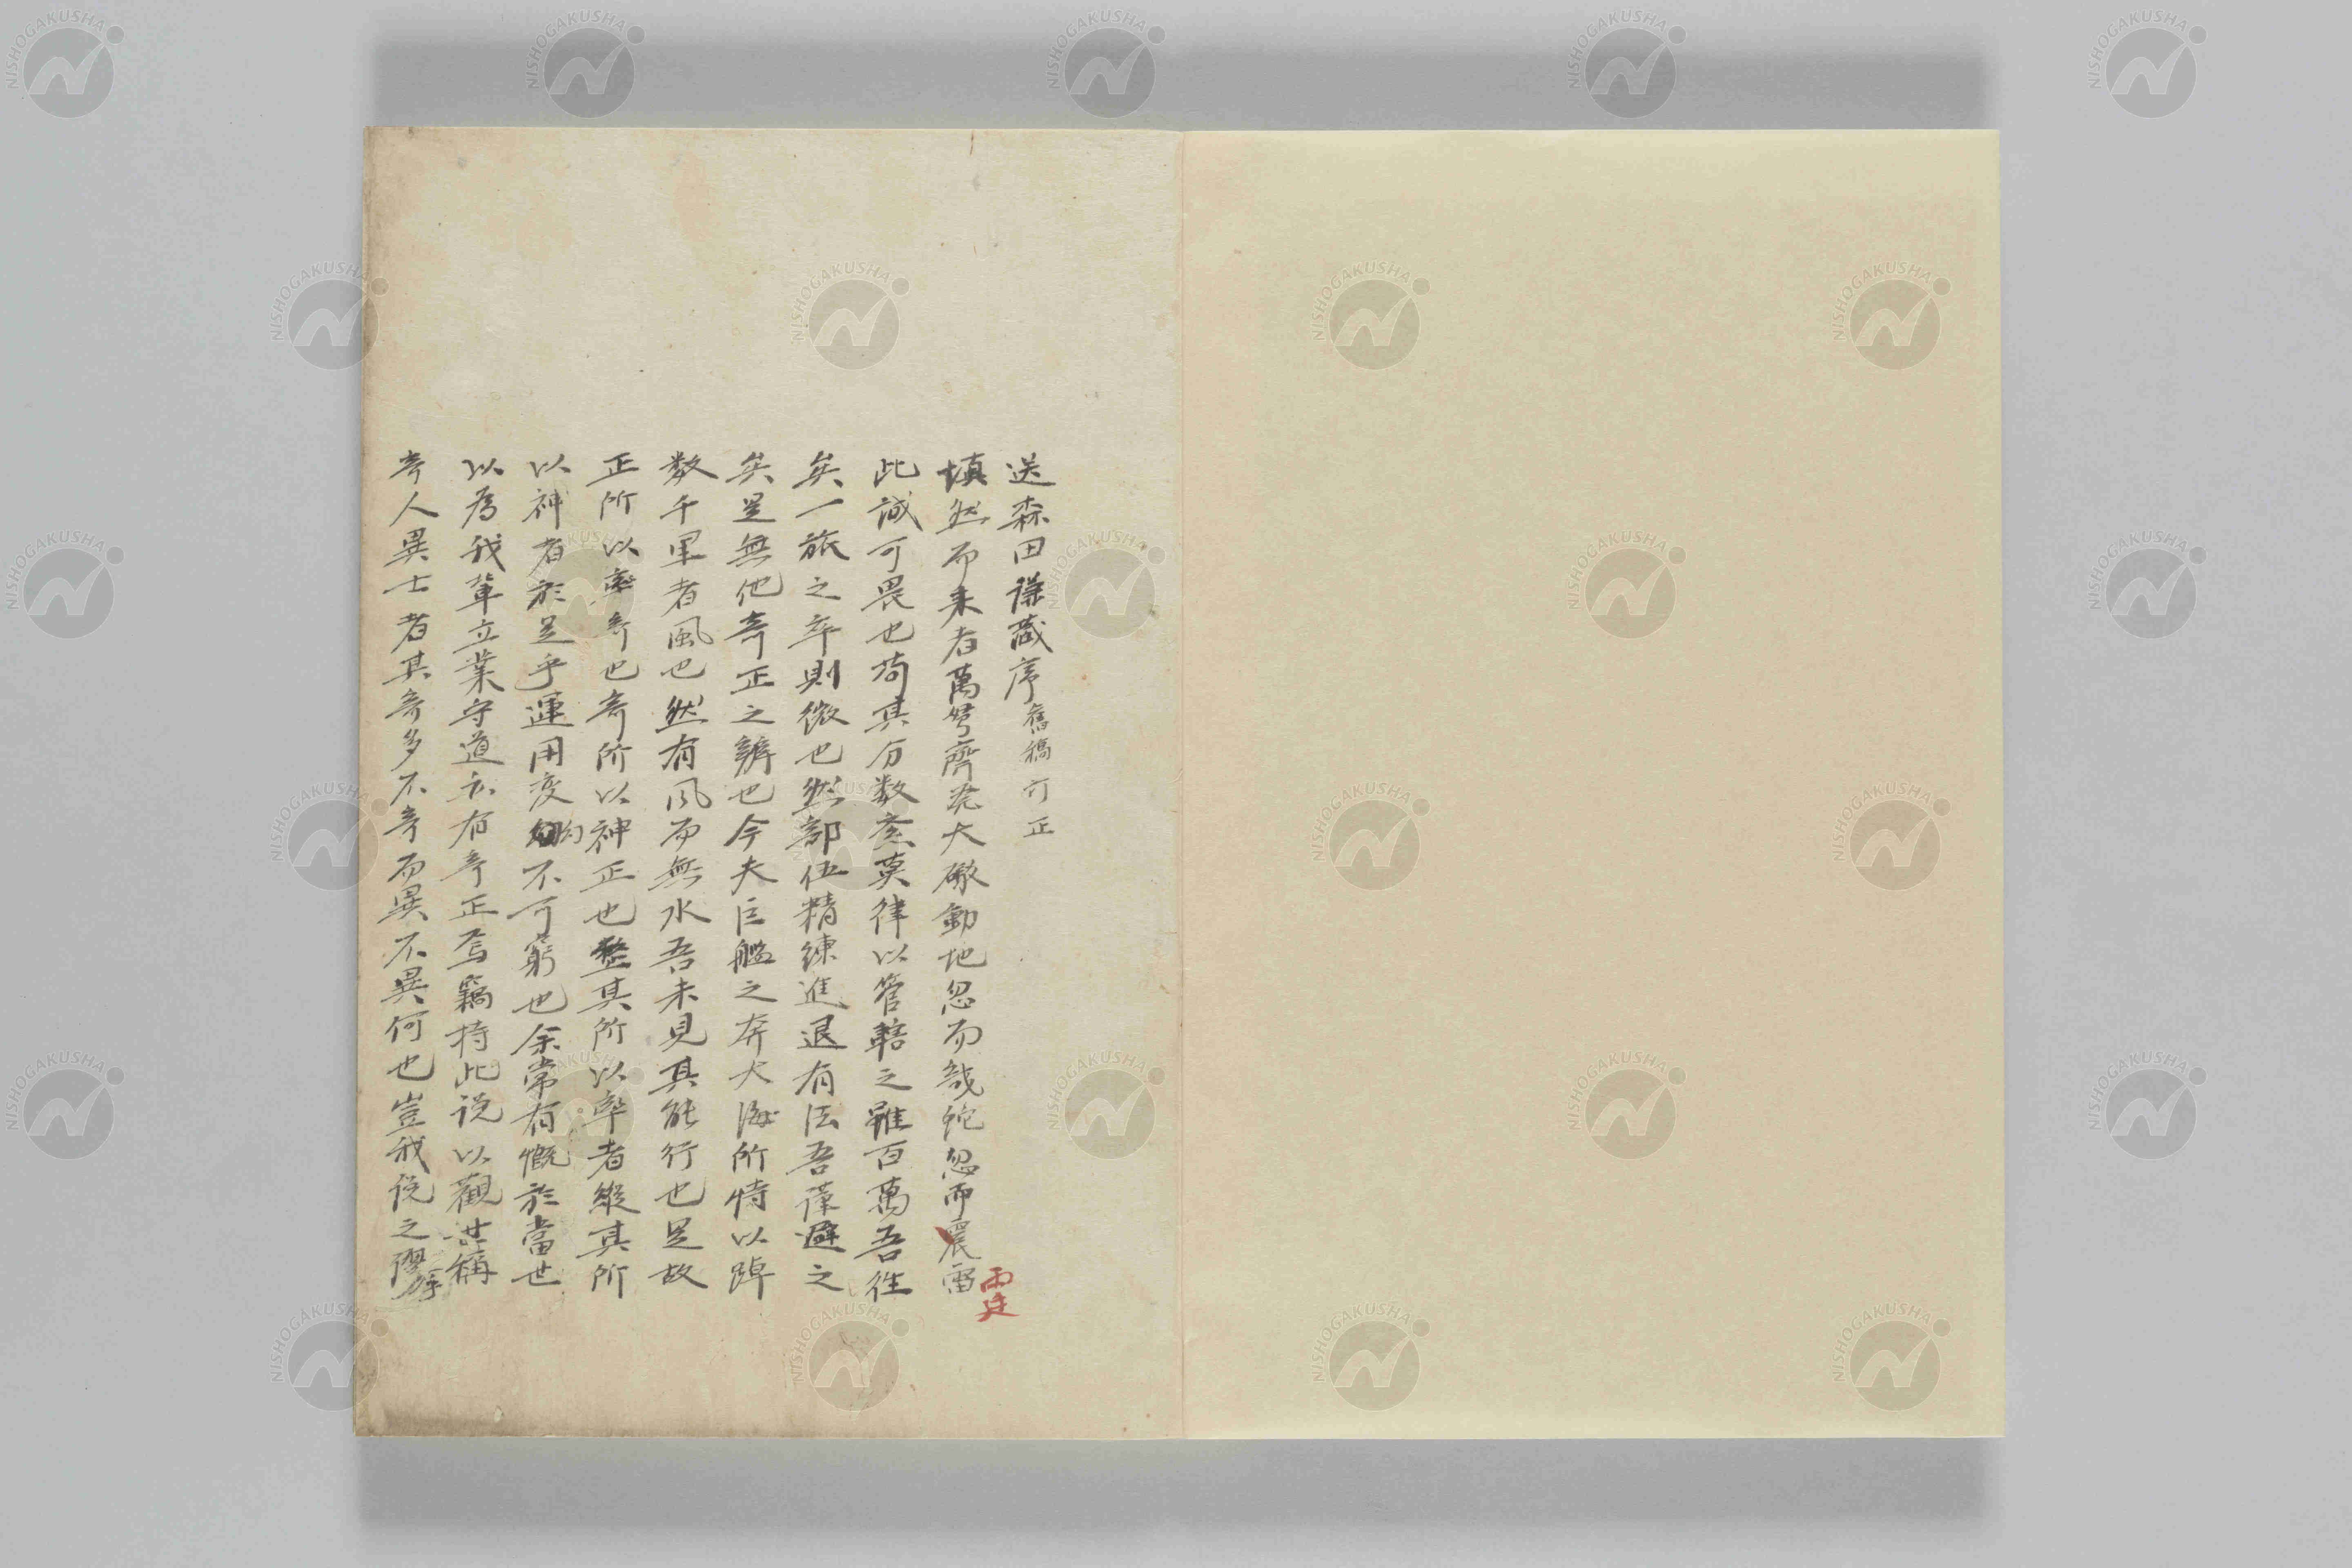 送森田謙蔵序 舊稿訂正
填然而来者萬弩齊発大礮動地忽而忽而震雷
雨廷
此誠可畏也苟其分数莫律以管轄之雖百萬吾徃
矣一旅之卒則微也然部伍精練進退有法吾謹避之
矣是無他奇正之辨也今夫巨艦之奔大海所恃以踔
数千里者風也然有風而無水吾未見其能行也是故
正所以率奇也奇所以神正也整其所以率者縦其所
以神者於是乎運用変幻不可窮也余常有慨於當世
以為我輩立業守道亦有奇正焉竊持此説以觀世稱
奇人異士者其奇多不奇而異不異何也豈我説之謬
NISHOGAKUSHA